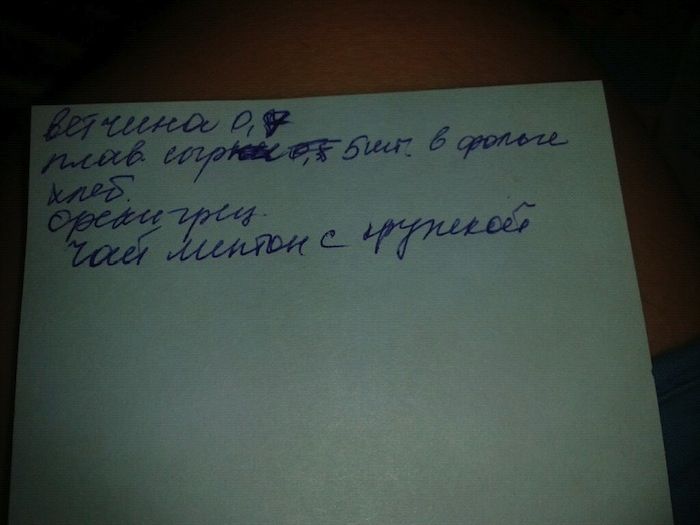 ветчина 0,7
плав. сыр 5шт. в фольге
хлеб.
орехи грец.
чай липтон с кружкой